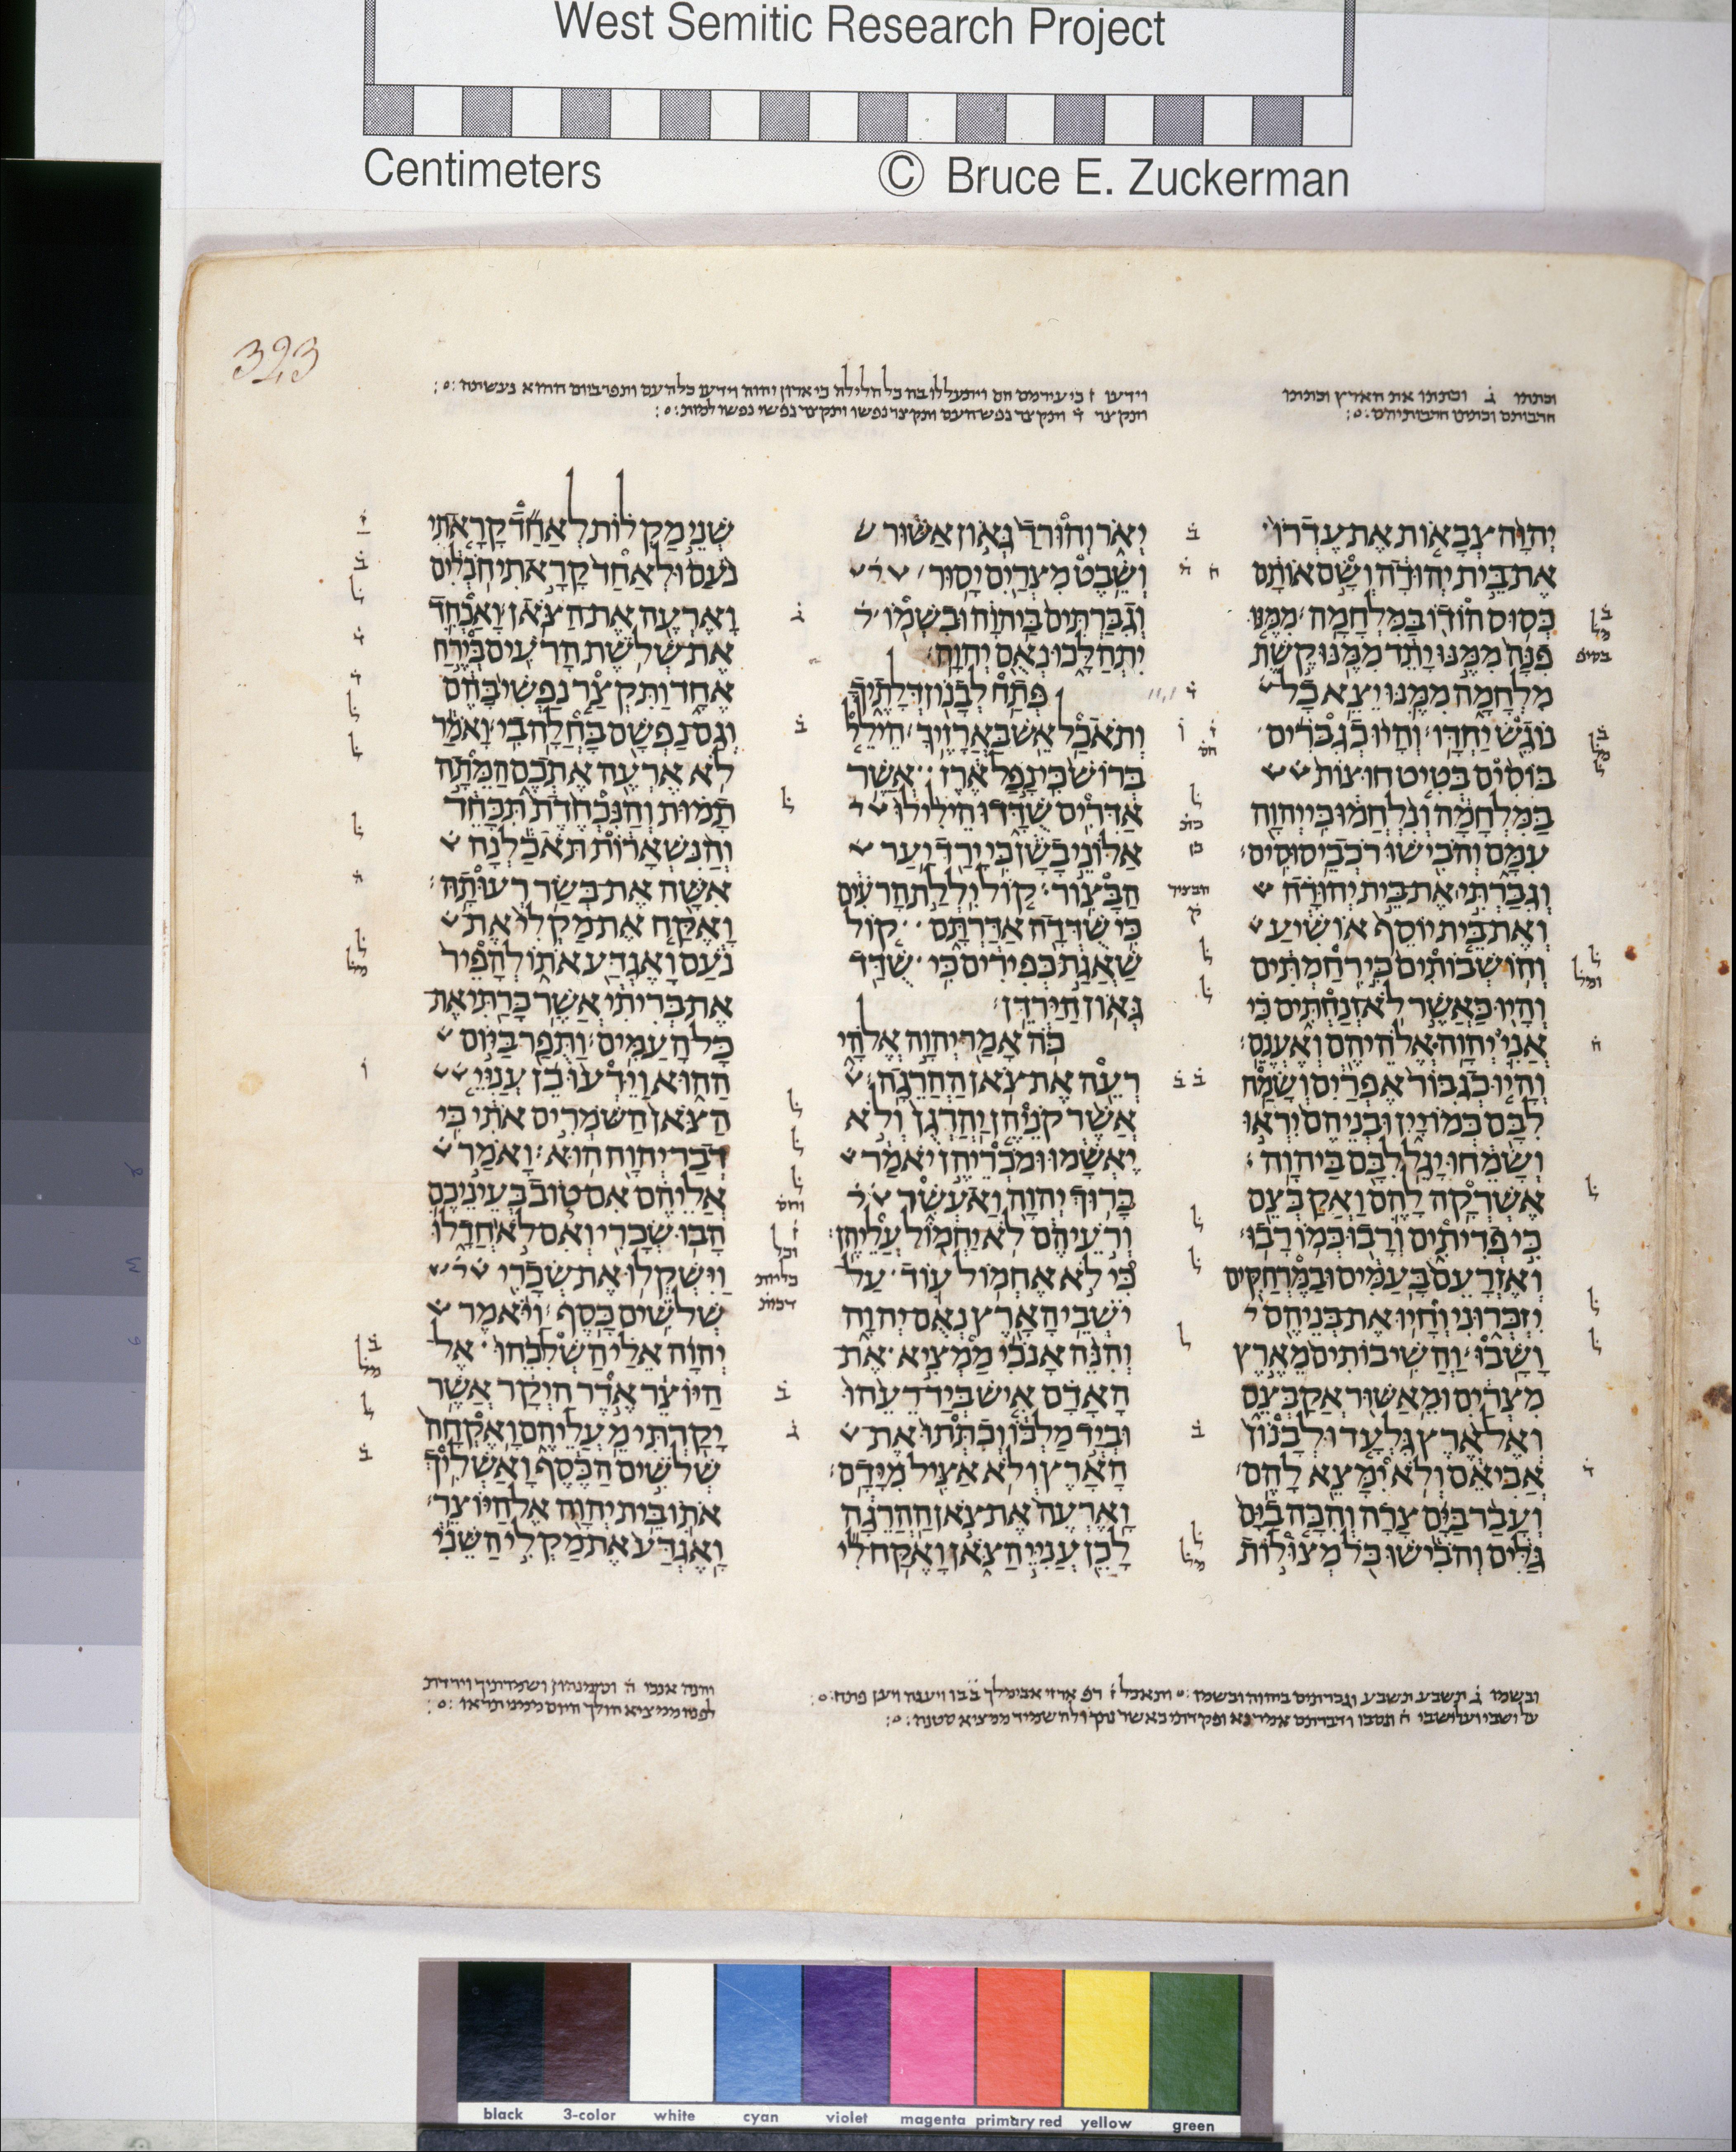 West Semitic Research Project
Centimeters © Bruce E. Zuckerman
323
וכתתו ג וכתתו את הארץ וכתתו
חרבותם וכתתו חרבותיהם
וידעו ז כי עירמם הם ויתעללו בה כל הלילה כי אדון יהוה וידעו כל העם ותפר ביום ההוא נעשתה
ותקצר ד ותקצר נפש העם ותקצר נפשו ותקצר נפשי נפשו למות
יְהוָה צְבָאוֹת אֶת עֶדְרוֹ
אֶת בֵּית יְהוּדָה וְשָׂם אוֹתָם
כְּסוּס הוֹדוֹ בַּמִּלְחָמָה׃ מִמֶּנּוּ
פִנָּה מִמֶּנּוּ יָתֵד מִמֶּנּוּ קֶשֶׁת
מִלְחָמָה מִמֶּנּוּ יֵצֵא כָל
נוֹגֵשׂ יַחְדָּו׃ וְהָיוּ כְגִבֹּרִים
בּוֹסִים בְּטִיט חוּצוֹת
בַּמִּלְחָמָה וְנִלְחֲמוּ כִּי יְהוָה
עִמָּם וְהֹבִישׁוּ רֹכְבֵי סוּסִים׃
וְגִבַּרְתִּי אֶת בֵּית יְהוּדָה
וְאֶת בֵּית יוֹסֵף אוֹשִׁיעַ
וְהוֹשְׁבוֹתִים כִּי רִחַמְתִּים
וְהָיוּ כַּאֲשֶׁר לֹא זְנַחְתִּים כִּי
אֲנִי יְהוָה אֱלֹהֵיהֶם וְאֶעֱנֵם׃
וְהָיוּ כְגִבּוֹר אֶפְרַיִם וְשָׂמַח
לִבָּם כְּמוֹ יָיִן וּבְנֵיהֶם יִרְאוּ
וְשָׂמֵחוּ יָגֵל לִבָּם בַּיהוָה׃
אֶשְׁרְקָה לָהֶם וַאֲקַבְּצֵם
כִּי פְדִיתִים וְרָבוּ כְּמוֹ רָבוּ׃
וְאֶזְרָעֵם בָּעַמִּים וּבַמֶּרְחַקִּים
יִזְכְּרוּנִי וְחָיוּ אֶת בְּנֵיהֶם
וָשָׁבוּ׃ וַהֲשִׁיבוֹתִים מֵאֶרֶץ
מִצְרַיִם וּמֵאַשּׁוּר אֲקַבְּצֵם
וְאֶל אֶרֶץ גִּלְעָד וּלְבָנוֹן
אֲבִיאֵם וְלֹא יִמָּצֵא לָהֶם׃
וְעָבַר בַּיָּם צָרָה וְהִכָּה בַיָּם
גַּלִּים וְהֹבִישׁוּ כֹּל מְצוּלוֹת
יְאֹר וְהוּרַד גְּאוֹן אַשּׁוּר
וְשֵׁבֶט מִצְרַיִם יָסוּר׃
וְגִבַּרְתִּים בַּיהוָה וּבִשְׁמוֹ
יִתְהַלָּכוּ נְאֻם יְהוָה׃
פְּתַח לְבָנוֹן דְּלָתֶיךָ
וְתֹאכַל אֵשׁ בַּאֲרָזֶיךָ׃ הֵילֵל
בְּרוֹשׁ כִּי נָפַל אֶרֶז אֲשֶׁר
אַדִּרִים שֻׁדָּדוּ הֵילִילוּ
אַלּוֹנֵי בָשָׁן כִּי יָרַד יַעַר
הַבָּצוּר׃ קוֹל יִלְלַת הָרֹעִים
כִּי שֻׁדְּדָה אַדַּרְתָּם קוֹל
שַׁאֲגַת כְּפִירִים כִּי שֻׁדַּד
גְּאוֹן הַיַּרְדֵּן׃
כֹּה אָמַר יְהוָה אֱלֹהָי
רְעֵה אֶת צֹאן הַהֲרֵגָה׃
אֲשֶׁר קֹנֵיהֶן יַהַרְגֻן וְלֹא
יֶאְשָׁמוּ וּמֹכְרֵיהֶן יֹאמַר
בָּרוּךְ יְהוָה וַאעְשִׁר
וְרֹעֵיהֶם לֹא יַחְמוֹל עֲלֵיהֶן׃
כִּי לֹא אֶחְמוֹל עוֹד עַל
יֹשְׁבֵי הָאָרֶץ נְאֻם יְהוָה
וְהִנֵּה אָנֹכִי מַמְצִיא אֶת
הָאָדָם אִישׁ בְּיַד רֵעֵהוּ
וּבְיַד מַלְכּוֹ וְכִתְּתוּ אֶת
הָאָרֶץ וְלֹא אַצִּיל מִיָּדָם׃
וָאֶרְעֶה אֶת צֹאן הַהֲרֵגָה
לָכֵן עֲנִיֵּי הַצֹּאן וָאֶקַּח לִי
שְׁנֵי מַקְלוֹת לְאַחַד קָרָאתִי
נֹעַם וּלְאַחַד קָרָאתִי חֹבְלִים
וָאֶרְעֶה אֶת הַצֹּאן׃ וָאַכְחִד
אֶת שְׁלֹשֶׁת הָרֹעִים בְּיֶרַח
אֶחָד וַתִּקְצַר נַפְשִׁי בָּהֶם
וְגַם נַפְשָׁם בָּחֲלָה בִי׃ וָאֹמַר
לֹא אֶרְעֶה אֶתְכֶם הַמֵּתָה
תָמוּת וְהַנִּכְחֶדֶת תִּכָּחֵד
וְהַנִּשְׁאָרוֹת תֹּאכַלְנָה
אִשָּׁה אֶת בְּשַׂר רְעוּתָהּ׃
וָאֶקַּח אֶת מַקְלִי אֶת
נֹעַם וָאֶגְדַּע אֹתוֹ לְהָפֵיר
אֶת בְּרִיתִי אֲשֶׁר כָּרַתִּי אֶת
כָּל הָעַמִּים׃ וַתֻּפַר בַּיּוֹם
הַהוּא וַיֵּדְעוּ כֵן עֲנִיֵּי
הַצֹּאן הַשֹּׁמְרִים אֹתִי כִּי
דְבַר יְהוָה הוּא׃ וָאֹמַר
אֲלֵיהֶם אִם טוֹב בְּעֵינֵיכֶם
הָבוּ שְׂכָרִי וְאִם לֹא חֲדָלוּ
וַיִּשְׁקְלוּ אֶת שְׂכָרִי
שְׁלֹשִׁים כָּסֶף׃ וַיֹּאמֶר
יְהוָה אֵלַי הַשְׁלִיכֵהוּ אֶל
הַיּוֹצֵר אֶדֶר הַיְקָר אֲשֶׁר
יָקַרְתִּי מֵעֲלֵיהֶם וָאֶקְחָה
שְׁלֹשִׁים הַכֶּסֶף וָאַשְׁלִיךְ
אֹתוֹ בֵּית יְהוָה אֶל הַיּוֹצֵר׃
וָאֶגְדַּע אֶת מַקְלִי הַשֵּׁנִי
ובשמו ג תשבע תשבע וגברתים ביהוה ובשמו
והנה אנכי ה
black 3-color white cyan violet magenta primary red yellow green